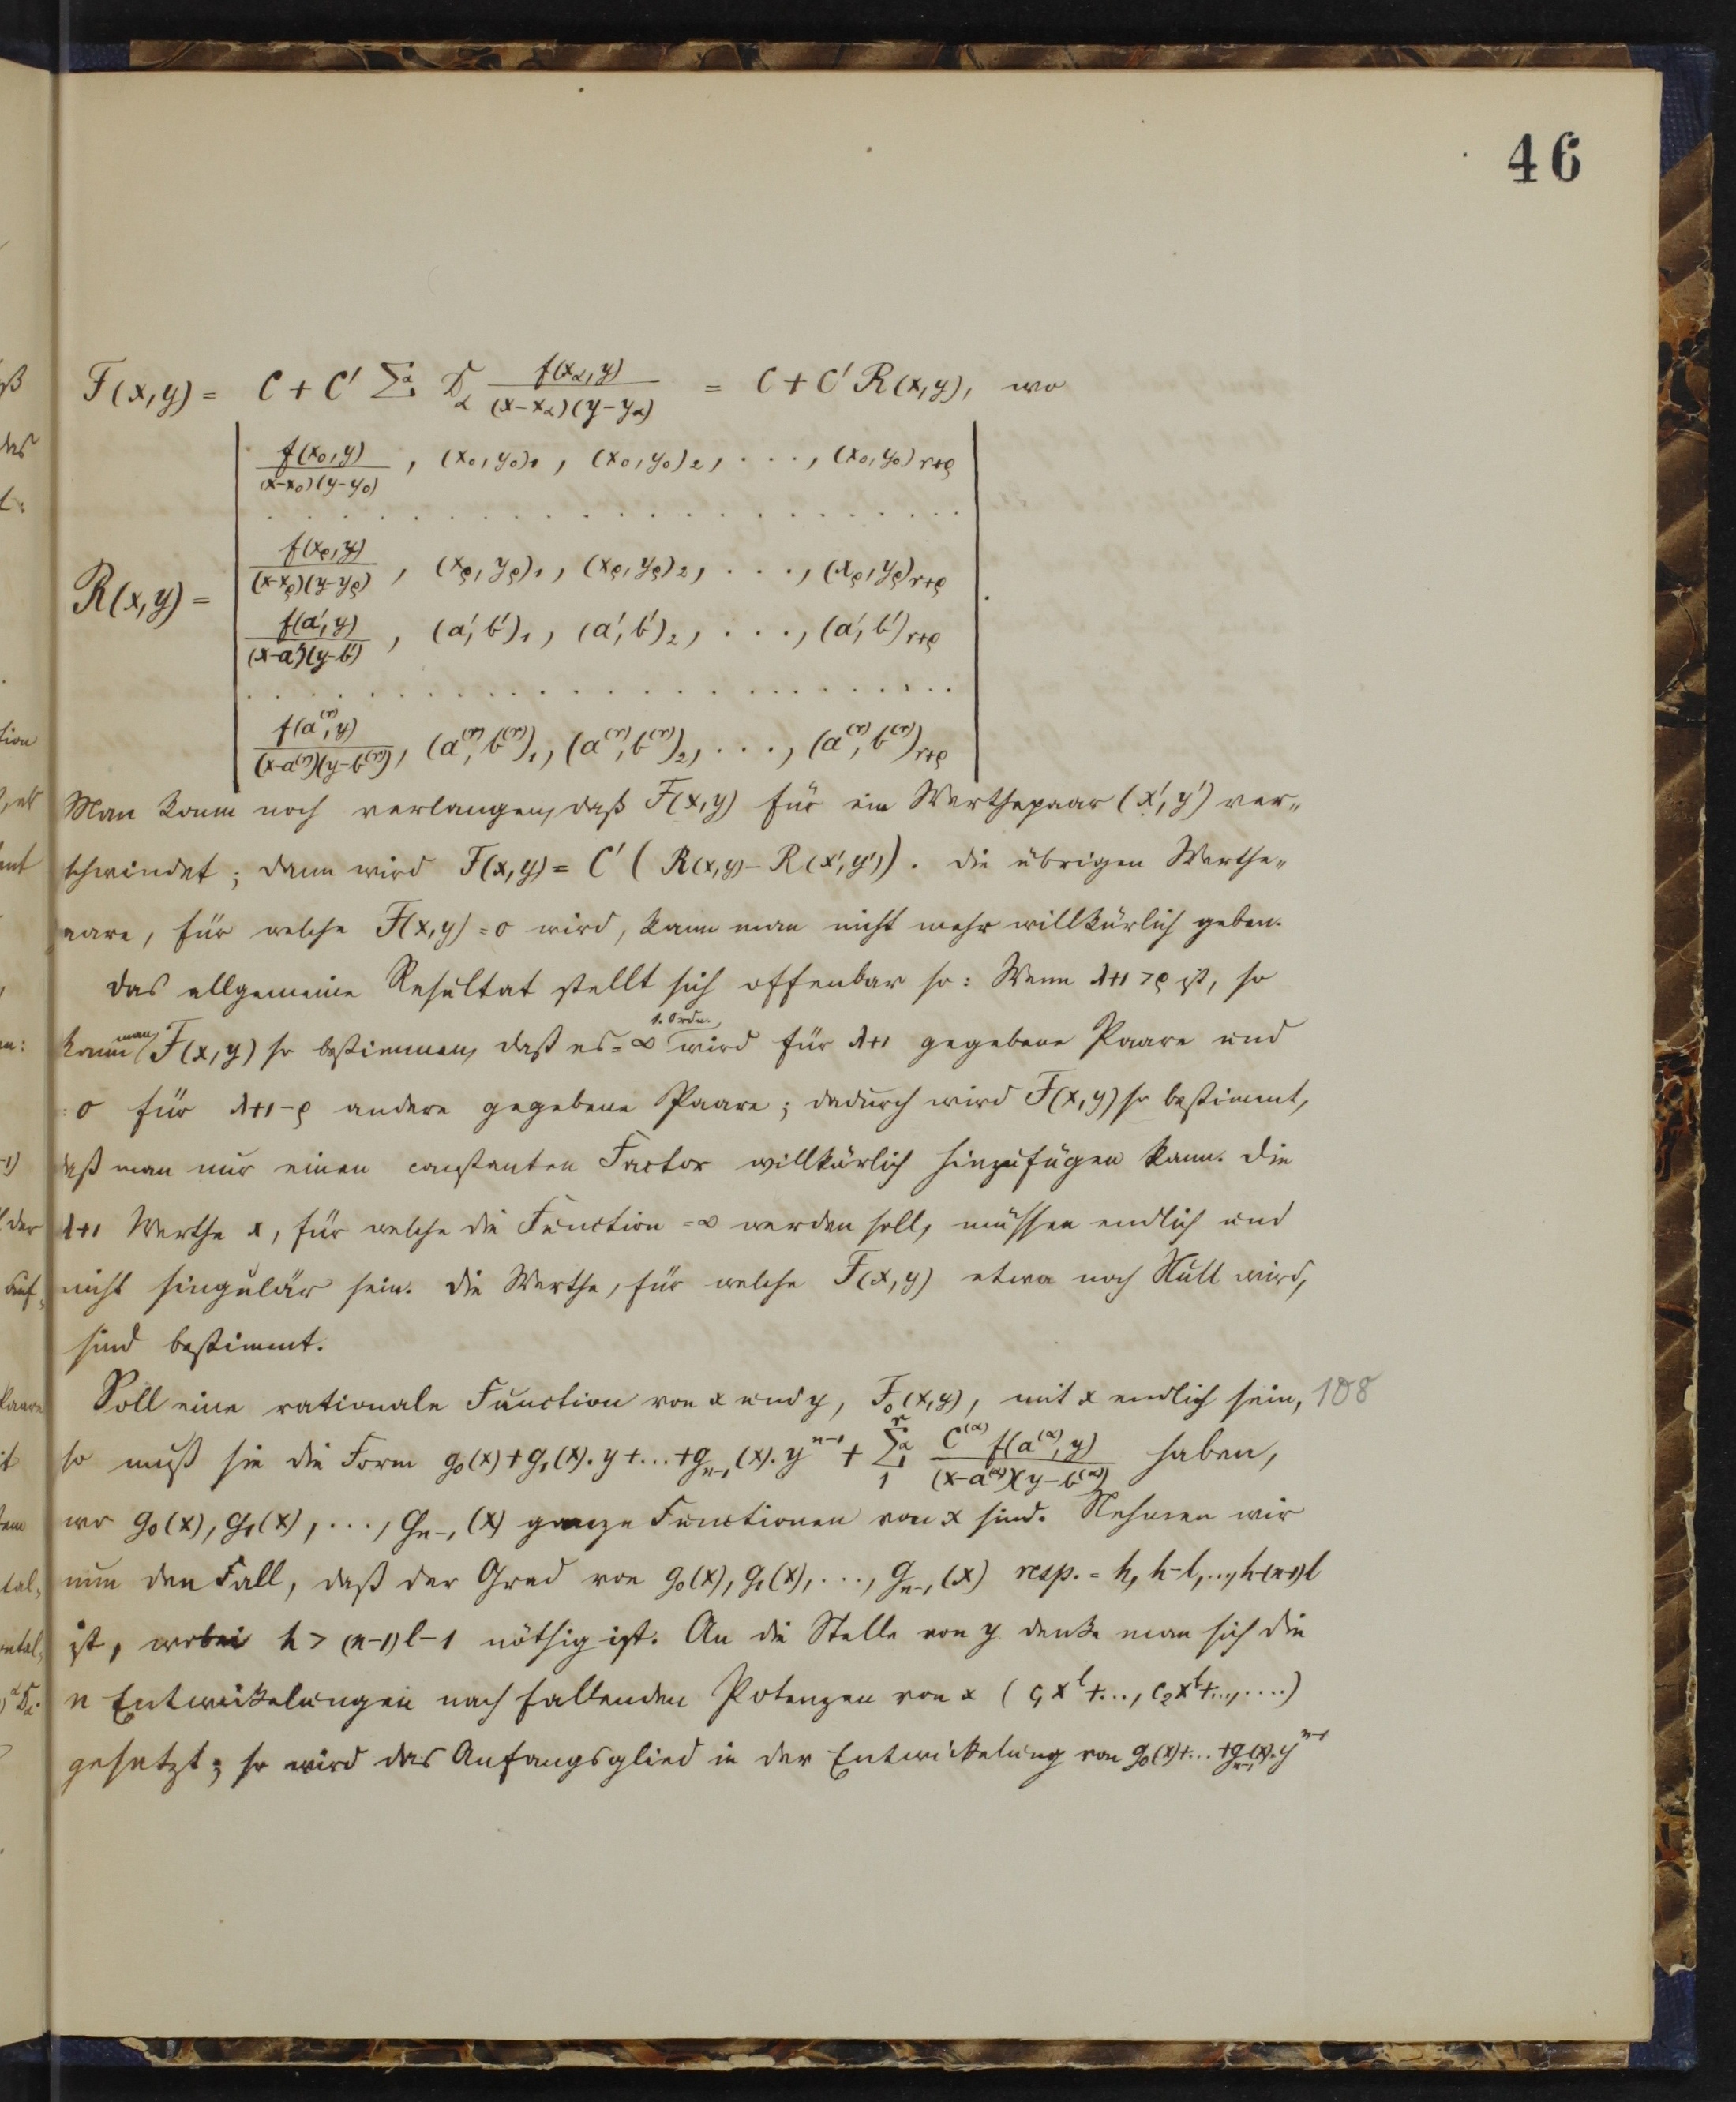 46
F(x,y) = C + C' Σ^α D_α f(x_α,y)/((x-x_α)(y-y_α)) = C + C' R(x,y), wo
R(x,y) =
| f(x_0,y)/((x-x_0)(y-y_0)), (x_0,y_0)_1, (x_0,y_0)_2, . . . , (x_0,y_0)_{r+ρ} |
. . . . . . . . . . . . . . . . . . . .
| f(x_ρ,y)/((x-x_ρ)(y-y_ρ)), (x_ρ,y_ρ)_1, (x_ρ,y_ρ)_2, . . . , (x_ρ,y_ρ)_{r+ρ} | .
| f(a',y)/((x-a')(y-b')), (a',b')_1, (a',b')_2, . . . , (a',b')_{r+ρ} |
. . . . . . . . . . . . . . . . . . . .
| f(a^{(r)},y)/((x-a^{(r)})(y-b^{(r)})), (a^{(r)},b^{(r)})_1, (a^{(r)},b^{(r)})_2, . . . , (a^{(r)},b^{(r)})_{r+ρ} |
Man kann noch verlangen, daß F(x,y) für ein Werthepaar (x',y') ver-
schwindet; dann wird F(x,y) = C' (R(x,y) - R(x',y')). Die übrigen Werthe-
paare, für welche F(x,y) = 0 wird, kann man nicht mehr willkürlich geben.
Das allgemeine Resultat stellt sich offenbar so: Wenn λ+1 > ρ ist, so
kann man F(x,y) so bestimmen, daß es = ∞ 1. Ordn. wird für λ+1 gegebene Paare und
= 0 für λ+1-ρ andere gegebene Paare; dadurch wird F(x,y) so bestimmt,
daß man nur einen constanten Factor willkürlich hinzufügen kann. Die
λ+1 Werthe x, für welche die Function = ∞ werden soll, müssen endlich und
nicht singulär sein. Die Werthe, für welche F(x,y) etwa noch Null wird,
sind bestimmt.
Soll eine rationale Function von x und y, F_0(x,y), mit x endlich sein, 108
so muß sie die Form g_0(x) + g_1(x).y + ... + g_{n-1}(x).y^{n-1} + Σ^α_1^r C^{(α)} f(a^{(α)},y)/((x-a^{(α)})(y-b^{(α)})) haben,
wo g_0(x), g_1(x), ..., g_{n-1}(x) ganze Functionen von x sind. Nehmen wir
nun den Fall, daß der Grad von g_0(x), g_1(x), ..., g_{n-1}(x) resp. = h, h-l, .., h-(n-1)l
ist, wobei h > (n-1)l-1 nöthig ist. An die Stelle von y denke man sich die
n Entwickelungen nach fallenden Potenzen von x (c_1x^l+..., c_2x^l+..., ....)
gesetzt; so wird das Anfangsglied in der Entwickelung von g_0(x)+...+g_{n-1}(x).y^{n-1}